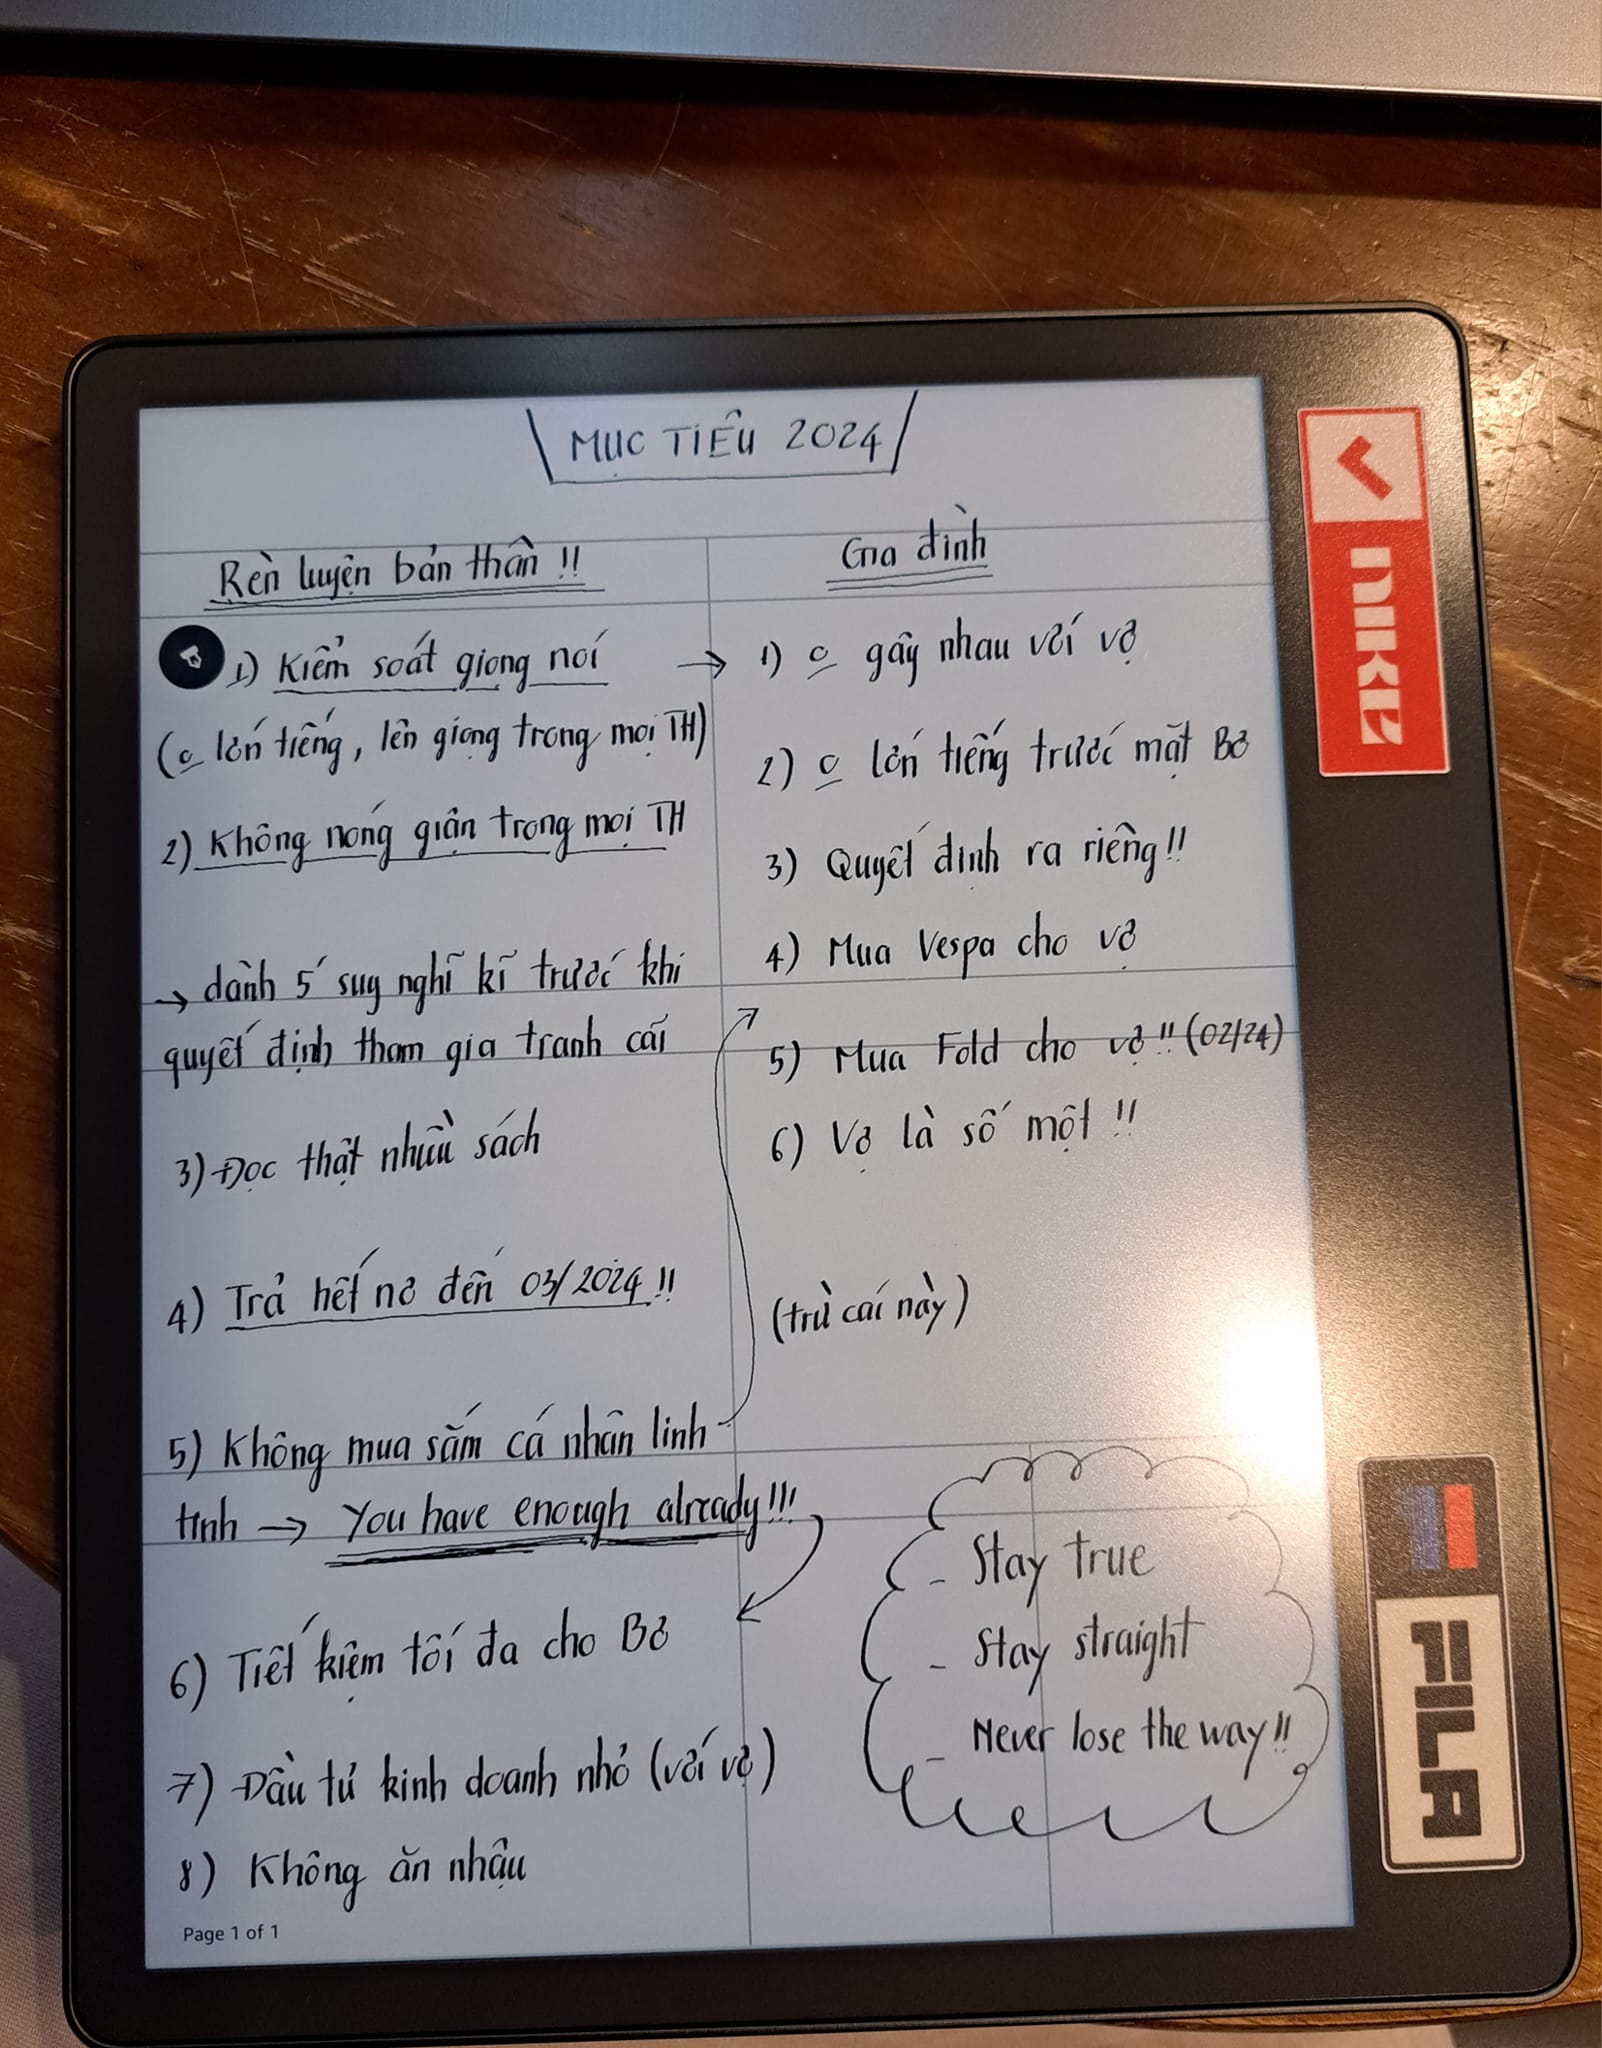 MỤC TIÊU 2024
Rèn luyện bản thân !!
1) Kiểm soát giọng nói →
(c̲ lớn tiếng, lên giọng trong mọi TH)
2) Không nóng giận trong mọi TH
→ dành 5' suy nghĩ kĩ trước khi
quyết định tham gia tranh cãi
3) Đọc thật nhiều sách
4) Trả hết nợ đến 03/2024 !!
5) Không mua sắm cá nhân linh
tinh → You have enough already!!!
6) Tiết kiệm tối đa cho Bơ
7) Đầu tư kinh doanh nhỏ (với vợ)
8) Không ăn nhậu
Page 1 of 1
Gia đình
1) c̲ gây nhau với vợ
2) c̲ lớn tiếng trước mặt Bơ
3) Quyết định ra riêng!!
4) Mua Vespa cho vợ
5) Mua Fold cho vợ !! (02/24)
6) Vợ là số một !!
(trừ cái này)
- Stay true
- Stay straight
- Never lose the way!!
NIKE
FILA